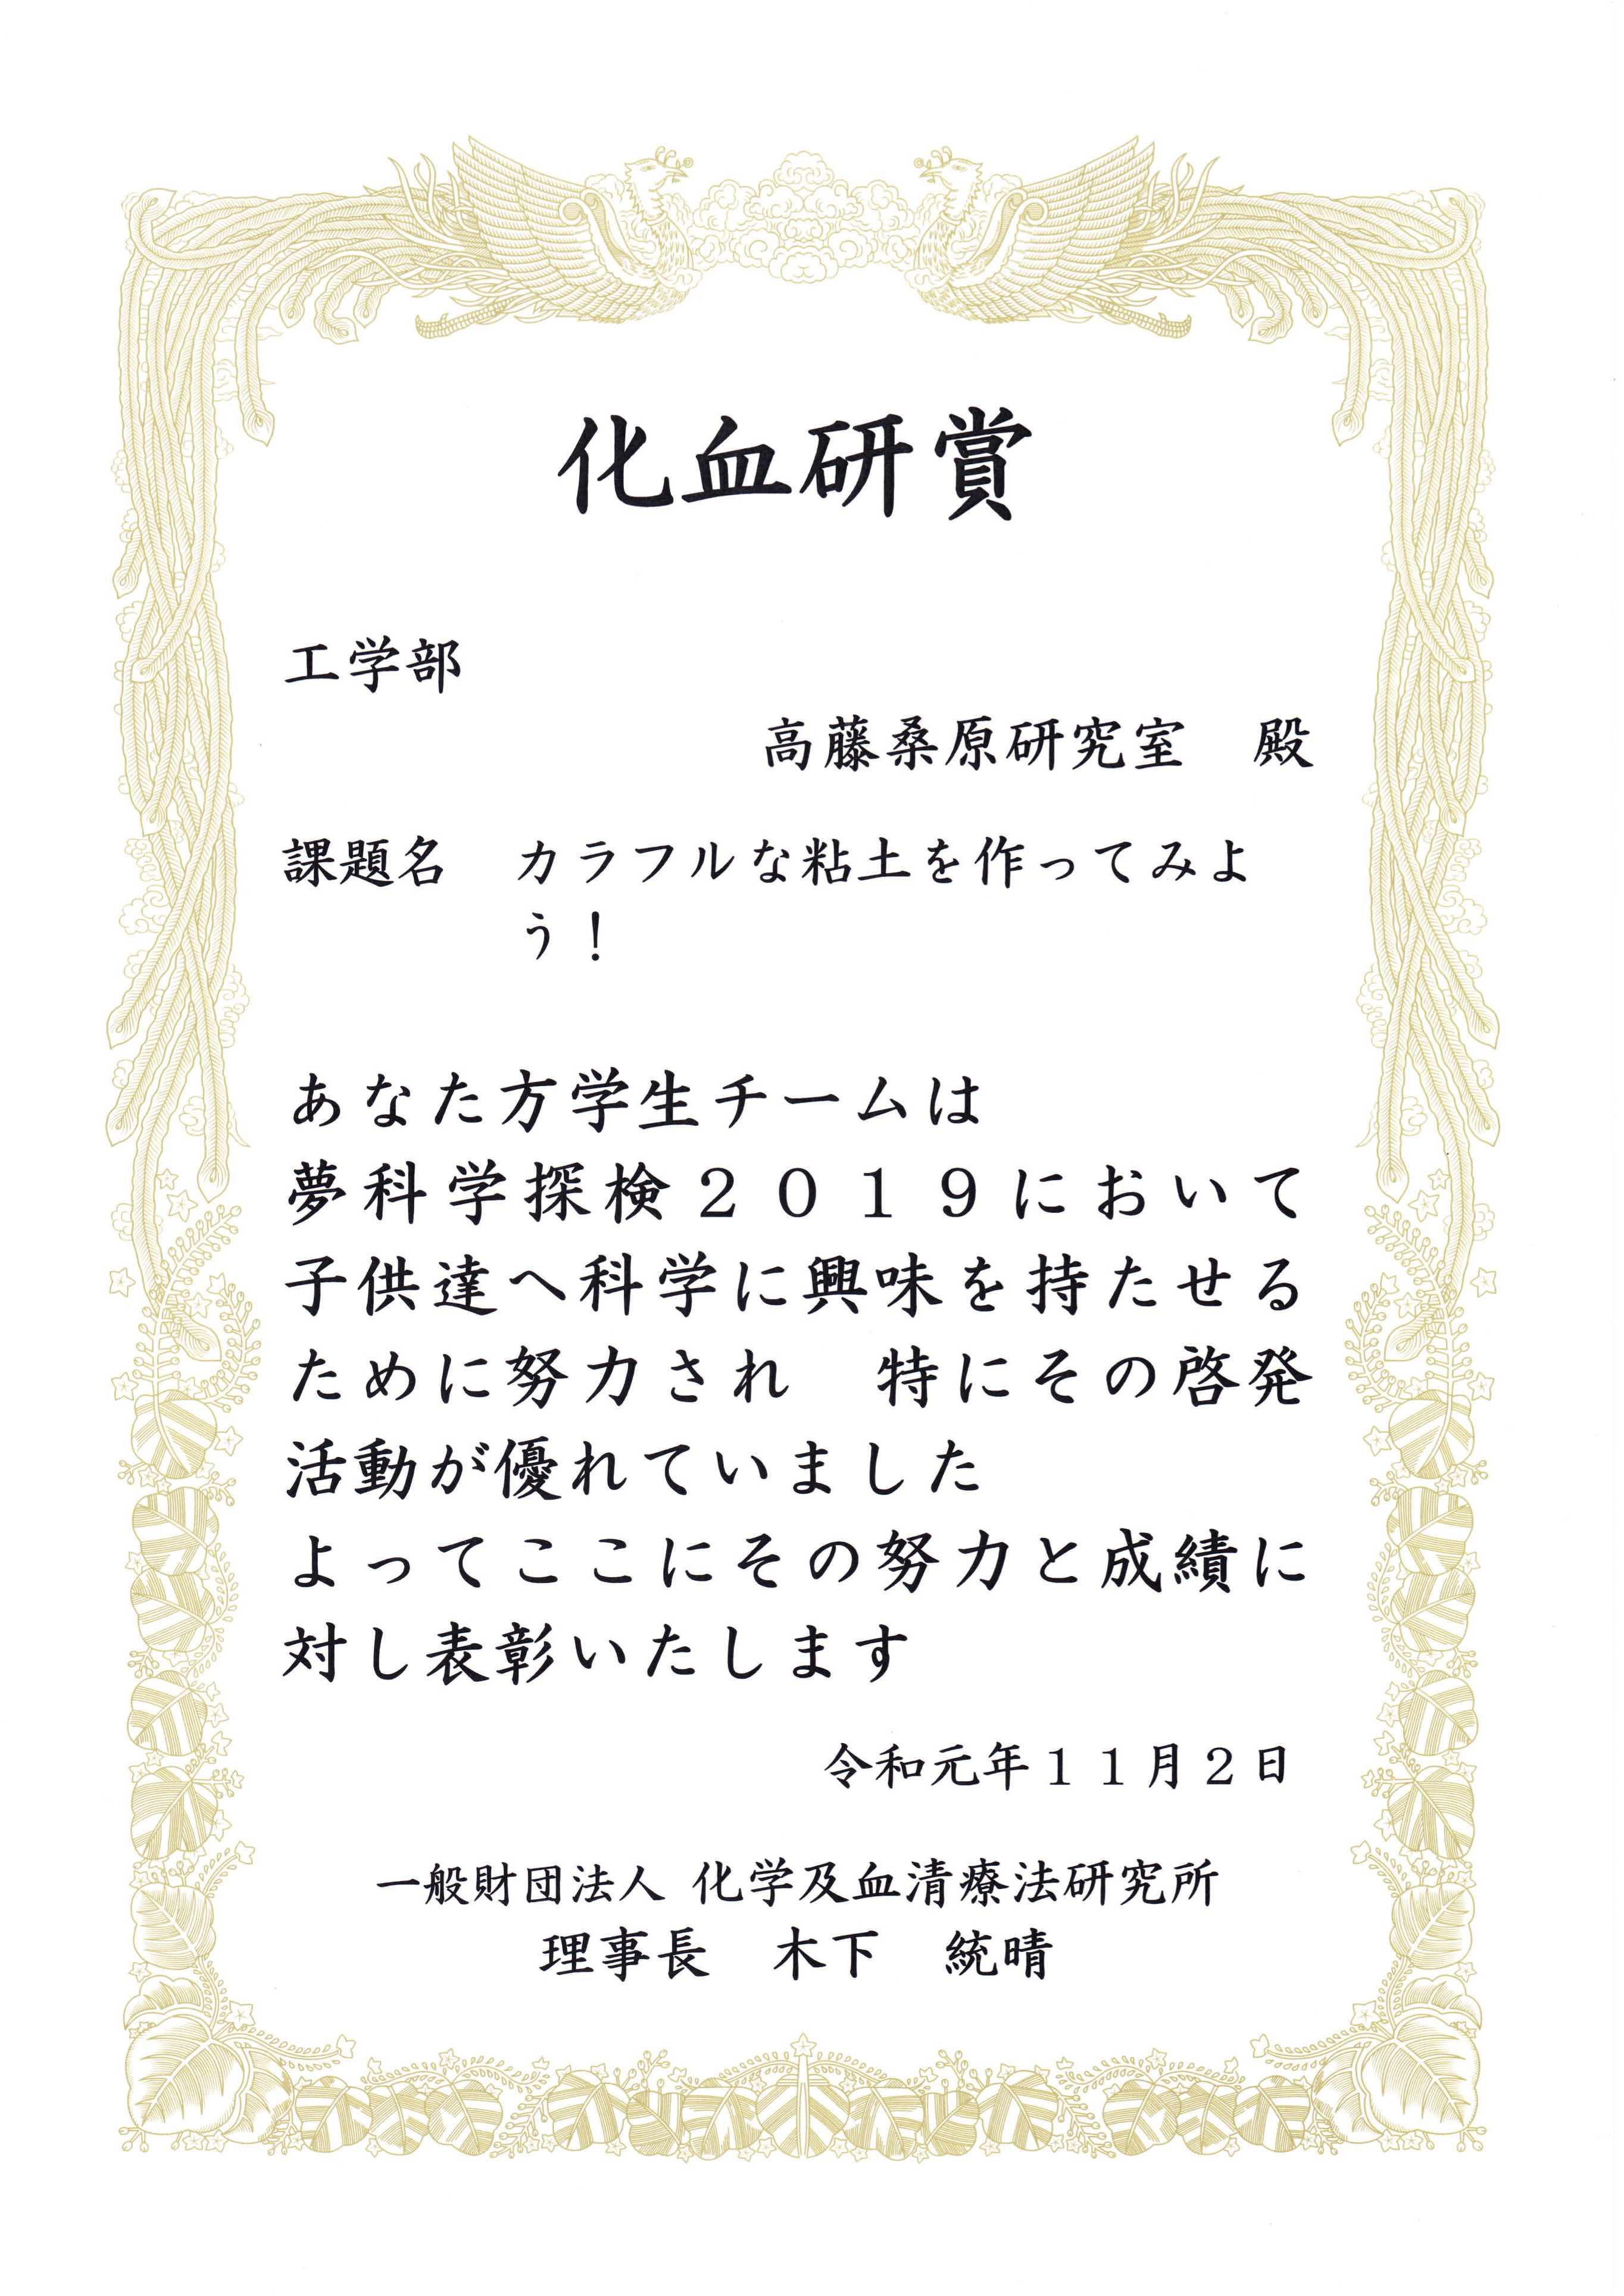 化血研賞
工学部
高藤桑原研究室　殿
課題名　カラフルな粘土を作ってみよ
う！
あなた方学生チームは
夢科学探検２０１９において
子供達へ科学に興味を持たせる
ために努力され　特にその啓発
活動が優れていました
よってここにその努力と成績に
対し表彰いたします
令和元年１１月２日
一般財団法人 化学及血清療法研究所
理事長　木下　統晴